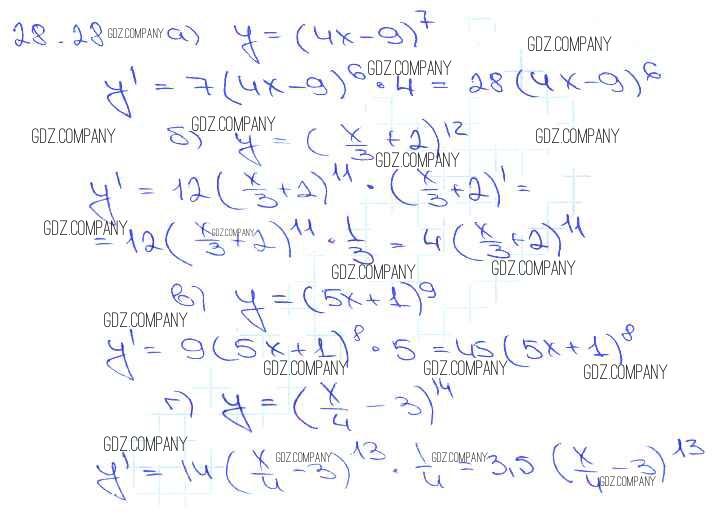 28.28 GDZ.COMPANY а) y = (4x-9)^7 GDZ.COMPANY
y' = 7(4x-9)^6 GDZ.COMPANY · 4 = 28(4x-9)^6
GDZ.COMPANY б) GDZ.COMPANY y = (x/3 + 2)^12 GDZ.COMPANY GDZ.COMPANY
y' = 12(x/3+2)^11 · (x/3+2)' =
GDZ.COMPANY = 12(x/3+2)^11 GDZ.COMPANY · 1/3 = 4(x/3+2)^11
GDZ.COMPANY GDZ.COMPANY
в) y = (5x+1)^9
GDZ.COMPANY
y' = 9(5x+1)^8 · 5 = 45(5x+1)^8
GDZ.COMPANY GDZ.COMPANY GDZ.COMPANY
г) y = (x/4 - 3)^14
GDZ.COMPANY
y' = 14(x/4-3)^13 GDZ.COMPANY · 1/4 GDZ.COMPANY = 3,5 (x/4-3)^13 GDZ.COMPANY